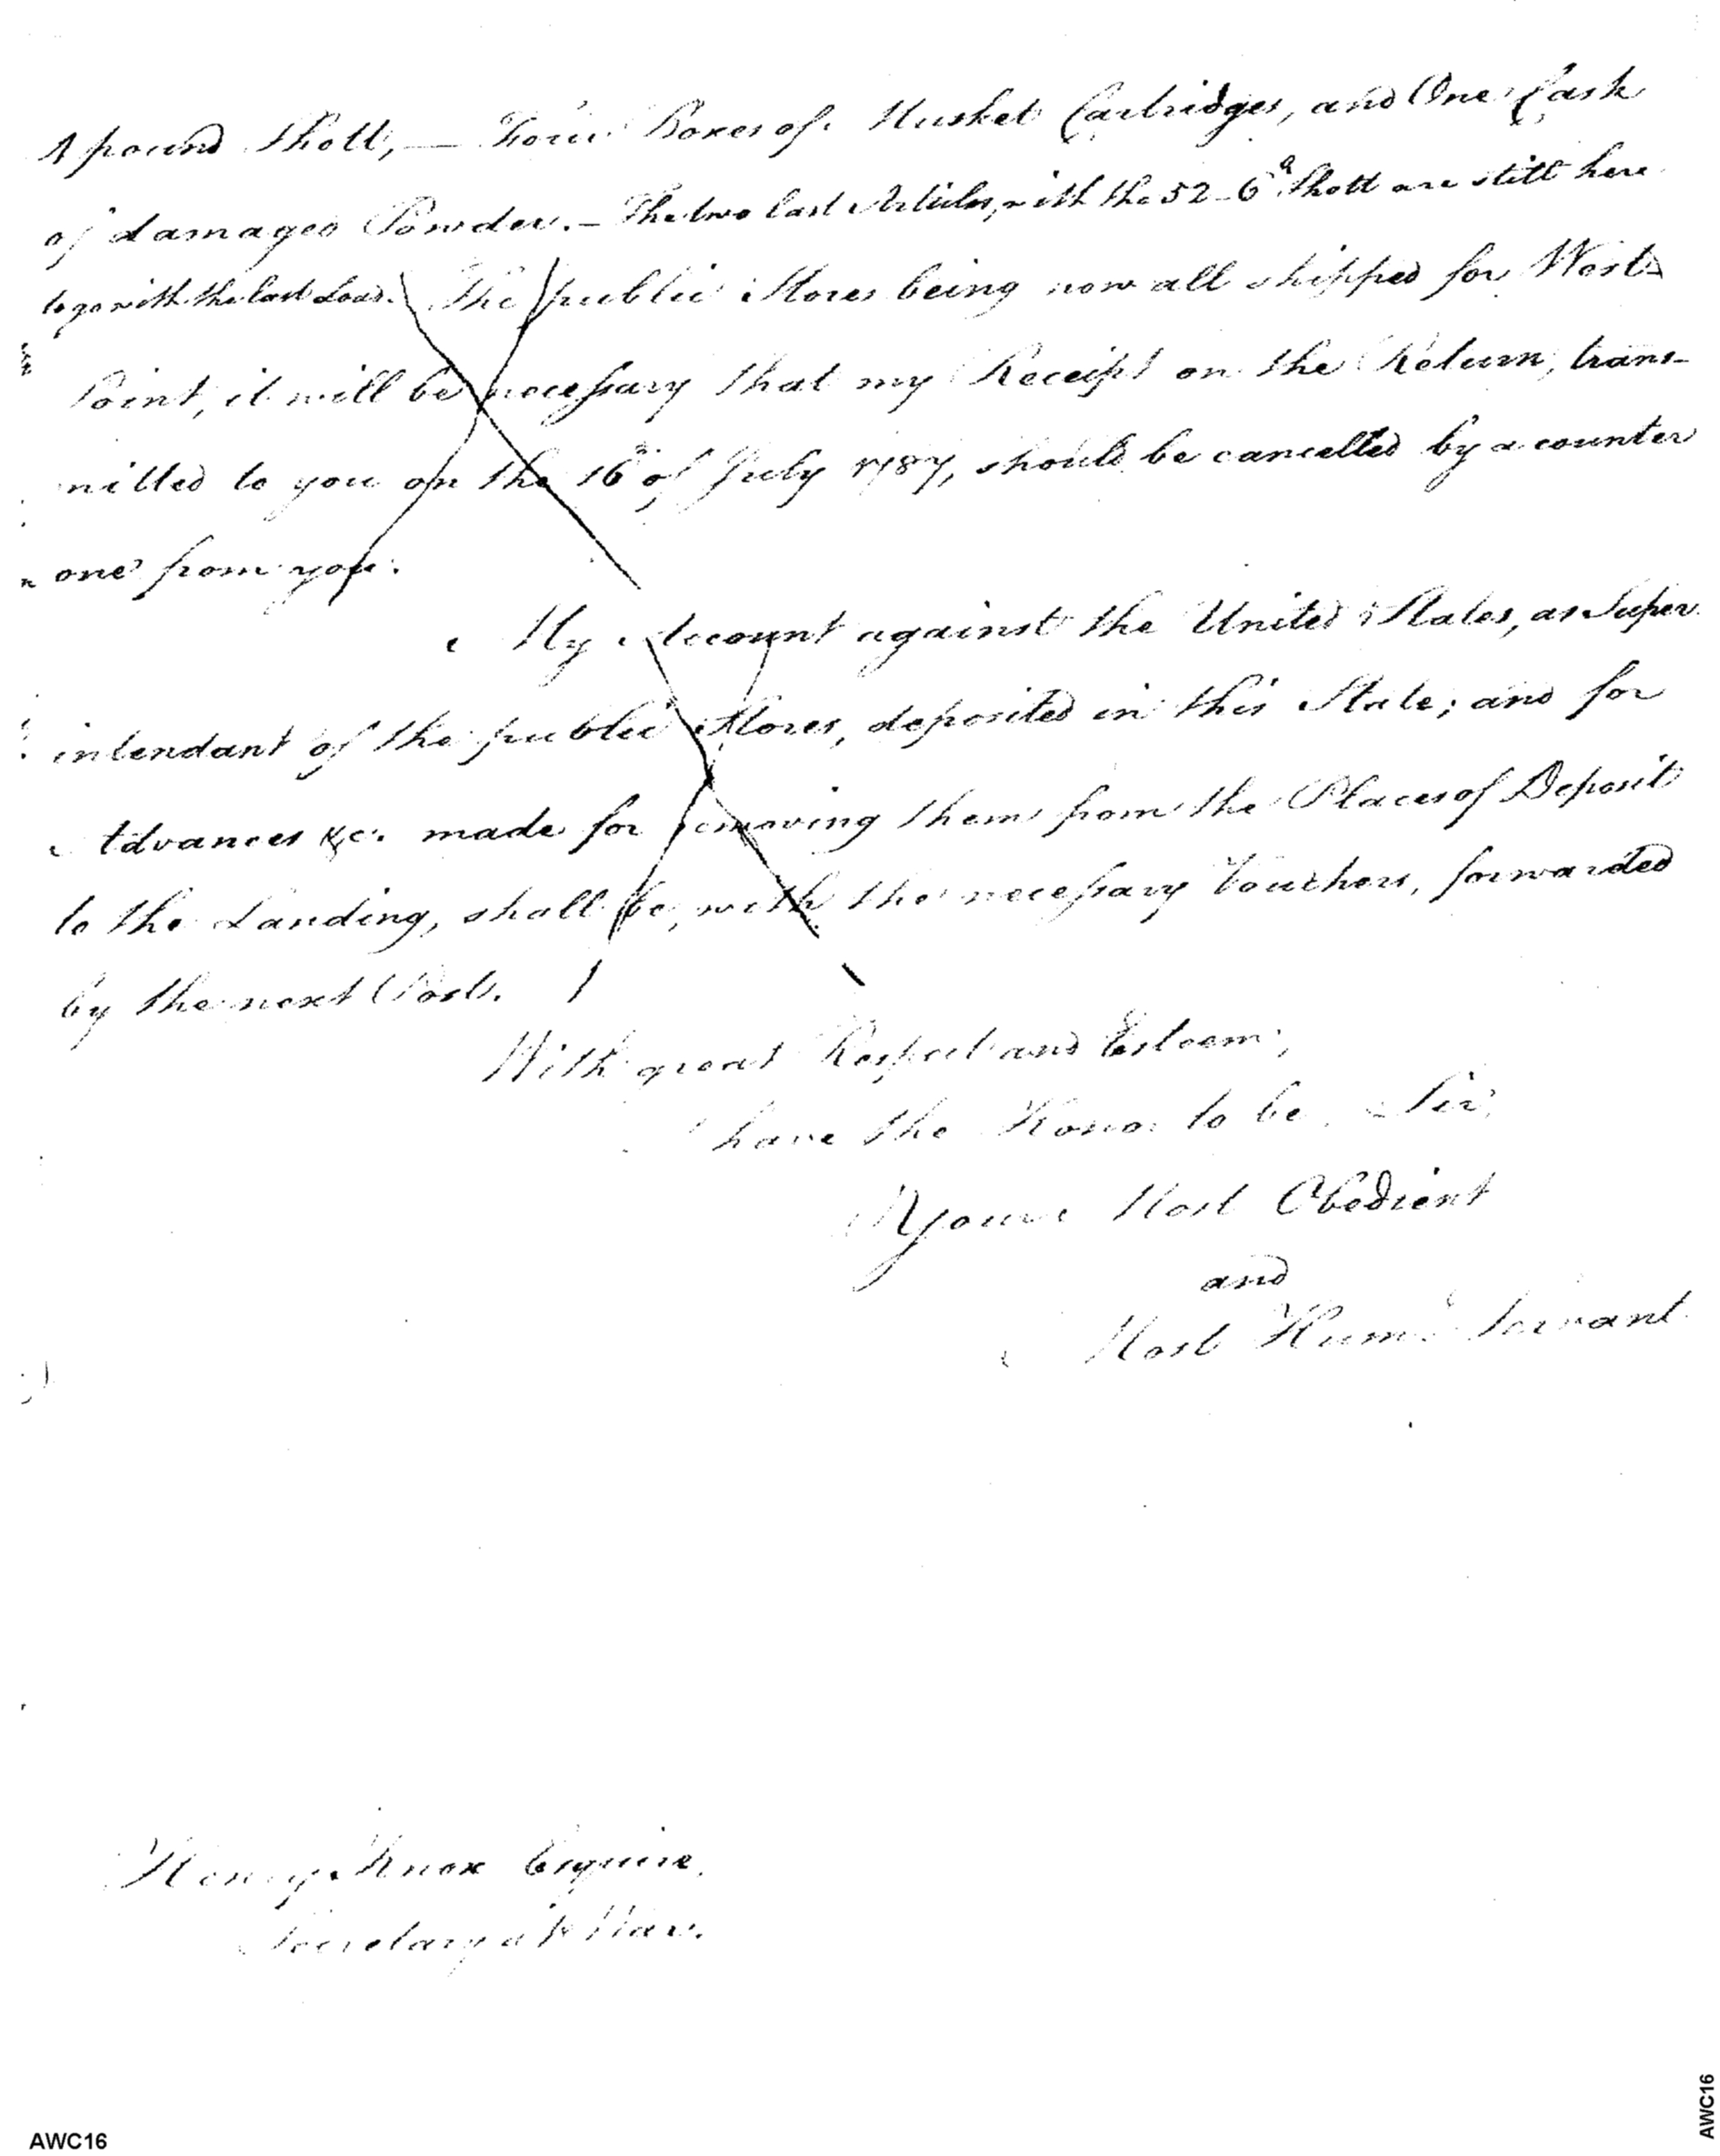 pound Shott, — Four Boxes of Musket Cartridges, and One Cask
of damaged Powder. – The two last Articles, with the 52 – 6d Shott are still here
to go with the last Load. The public Stores being now all shipped for West-
Point, it will be necessary that my Receipt on the Return, trans-
mitted to you on the 16th of July 1787, should be cancelled by a counter
one from you.
My Account against the United States, as Super
intendant of the public Stores, deposited in this State; and for
Advances &c. made for removing them from the Places of Deposit
to the Landing, shall be, with the necessary Vouchers, forwarded
by the next Post.
With great Respect and Esteem,
I have the Honor to be, Sir,
Your Most Obedient
and
Most Humle Servant
Henry Knox Esquire,
Secretary at War.
AWC16
AWC16